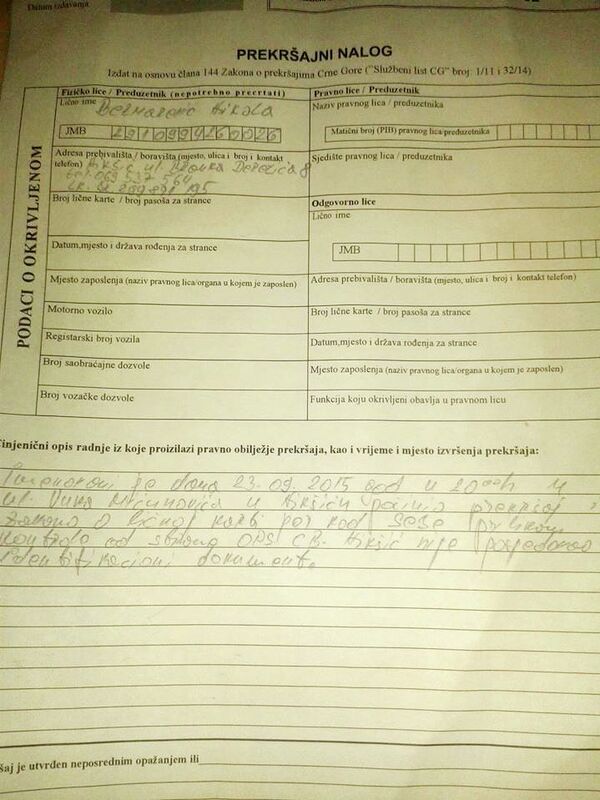 Datum izdavanja
PREKRŠAJNI NALOG
Izdat na osnovu člana 144 Zakona o prekršajima Crne Gore ("Službeni list CG" broj: 1/11 i 32/14)
PODACI O OKRIVLJENOM
Fizičko lice / Preduzetnik (nepotrebno precrtati)
Lično ime Nikola
JMB
Adresa prebivališta / boravišta (mjesto, ulica i broj i kontakt
telefon)
Broj lične karte / broj pasoša za strance
Datum,mjesto i država rođenja za strance
Mjesto zaposlenja (naziv pravnog lica/organa u kojem je zaposlen)
Motorno vozilo
Registarski broj vozila
Broj saobraćajne dozvole
Broj vozačke dozvole
Pravno lice / Preduzetnik
Naziv pravnog lica / preduzetnika
Matični broj (PIB) pravnog lica/preduzetnika
Sjedište pravnog lica / preduzetnika
Odgovorno lice
Lično ime
JMB
Adresa prebivališta / boravišta (mjesto, ulica i broj i kontakt telefon)
Broj lične karte / broj pasoša za strance
Datum,mjesto i država rođenja za strance
Mjesto zaposlenja (naziv pravnog lica/organa u kojem je zaposlen)
Funkcija koju okrivljeni obavlja u pravnom licu
injenični opis radnje iz koje proizilazi pravno obilježje prekršaja, kao i vrijeme i mjesto izvršenja prekršaja:
Imenovani je dana 23.09.2015 god u 20 h u
ul. Vuka Mićunovića u Nikšiću počinio prekršaj
zakona o ličnoj karti jer kod sebe prilikom
kontrole od strane CB Nikšić nije posjedovao
identifikacioni dokument.
šaj je utvrđen neposrednim opažanjem ili